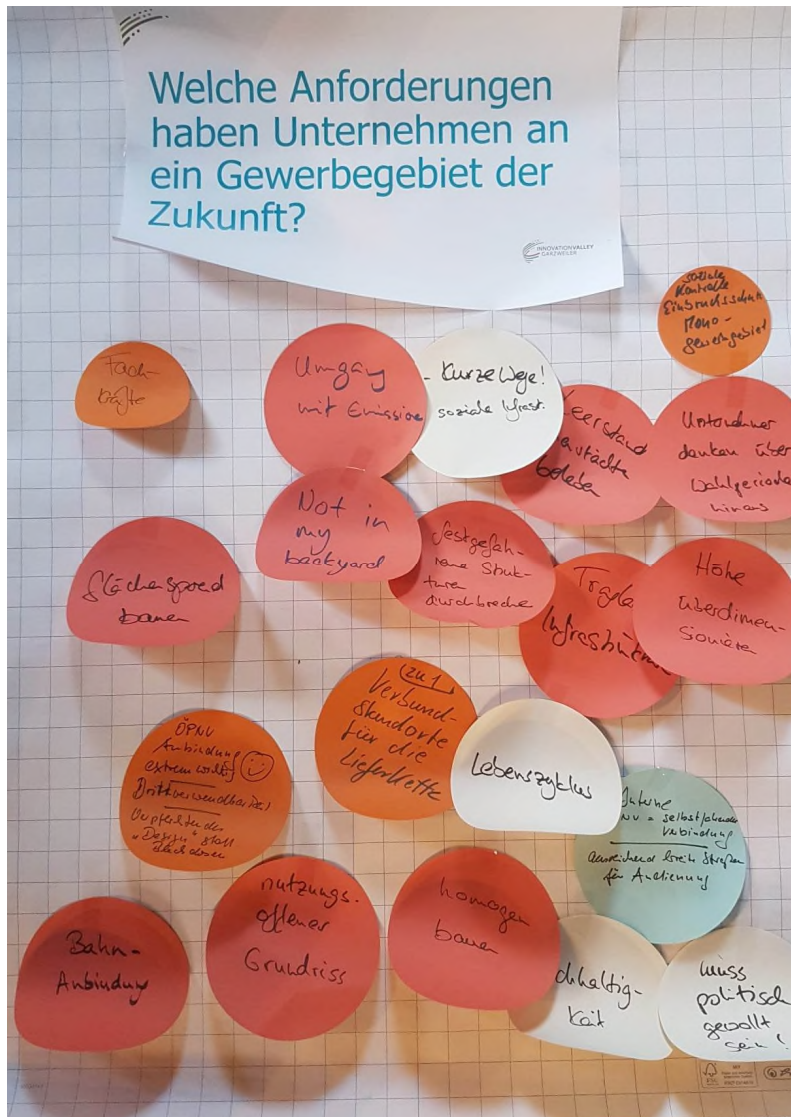 Welche Anforderungen
haben Unternehmen an
ein Gewerbegebiet der
Zukunft?
INNOVATIONVALLEY
GARZWEILER
soziale
Kontrolle
Einbruchsschutz
Mono-
gewerbegebiet
Fach-
kräfte
Umgang
mit Emissione
- Kurze Wege!
soziale Infrast.
Leerstand
beleben
Unternehmer
denken über
Wahlperiode
hinaus
Not in
my
backyard
festgefah-
rene Struk-
turen
durchbreche
flächensparend
bauen
Infrastruktur
Höhe
überdimen-
sionieren
(zu 1)
Verbund-
standorte
für die
Lieferkette
Lebenszyklus
ÖPNV
Anbindung
extrem wichtig
Drittverwendbarkeit
"Design" statt
Interne
NV = selbstfahrende
Verbindung
ausreichend breite Straßen
für Andienung
Bahn-
Anbindung
nutzungs-
offener
Grundriss
homogen
bauen
chhaltig-
keit
muss
politisch
gewollt
sein!
FSC
MIX